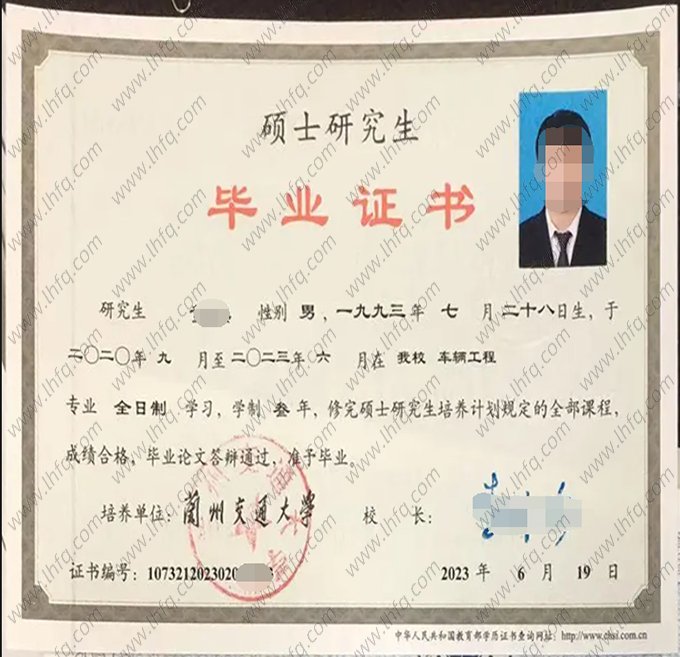 硕士研究生
毕业证书
研究生 性别 男，一九九三年 七 月二十八日生，于
二〇二〇年 九 月至二〇二三年 六 月在 我校 车辆工程
专业 全日制 学习，学制 叁 年，修完硕士研究生培养计划规定的全部课程，
成绩合格，毕业论文答辩通过，准予毕业。
培养单位：蘭州交通大学 校 长：
证书编号：1073212023020 2023 年 6 月 19 日
中华人民共和国教育部学历证书查询网址：http://www.chsi.com.cn
www.lhfq.com